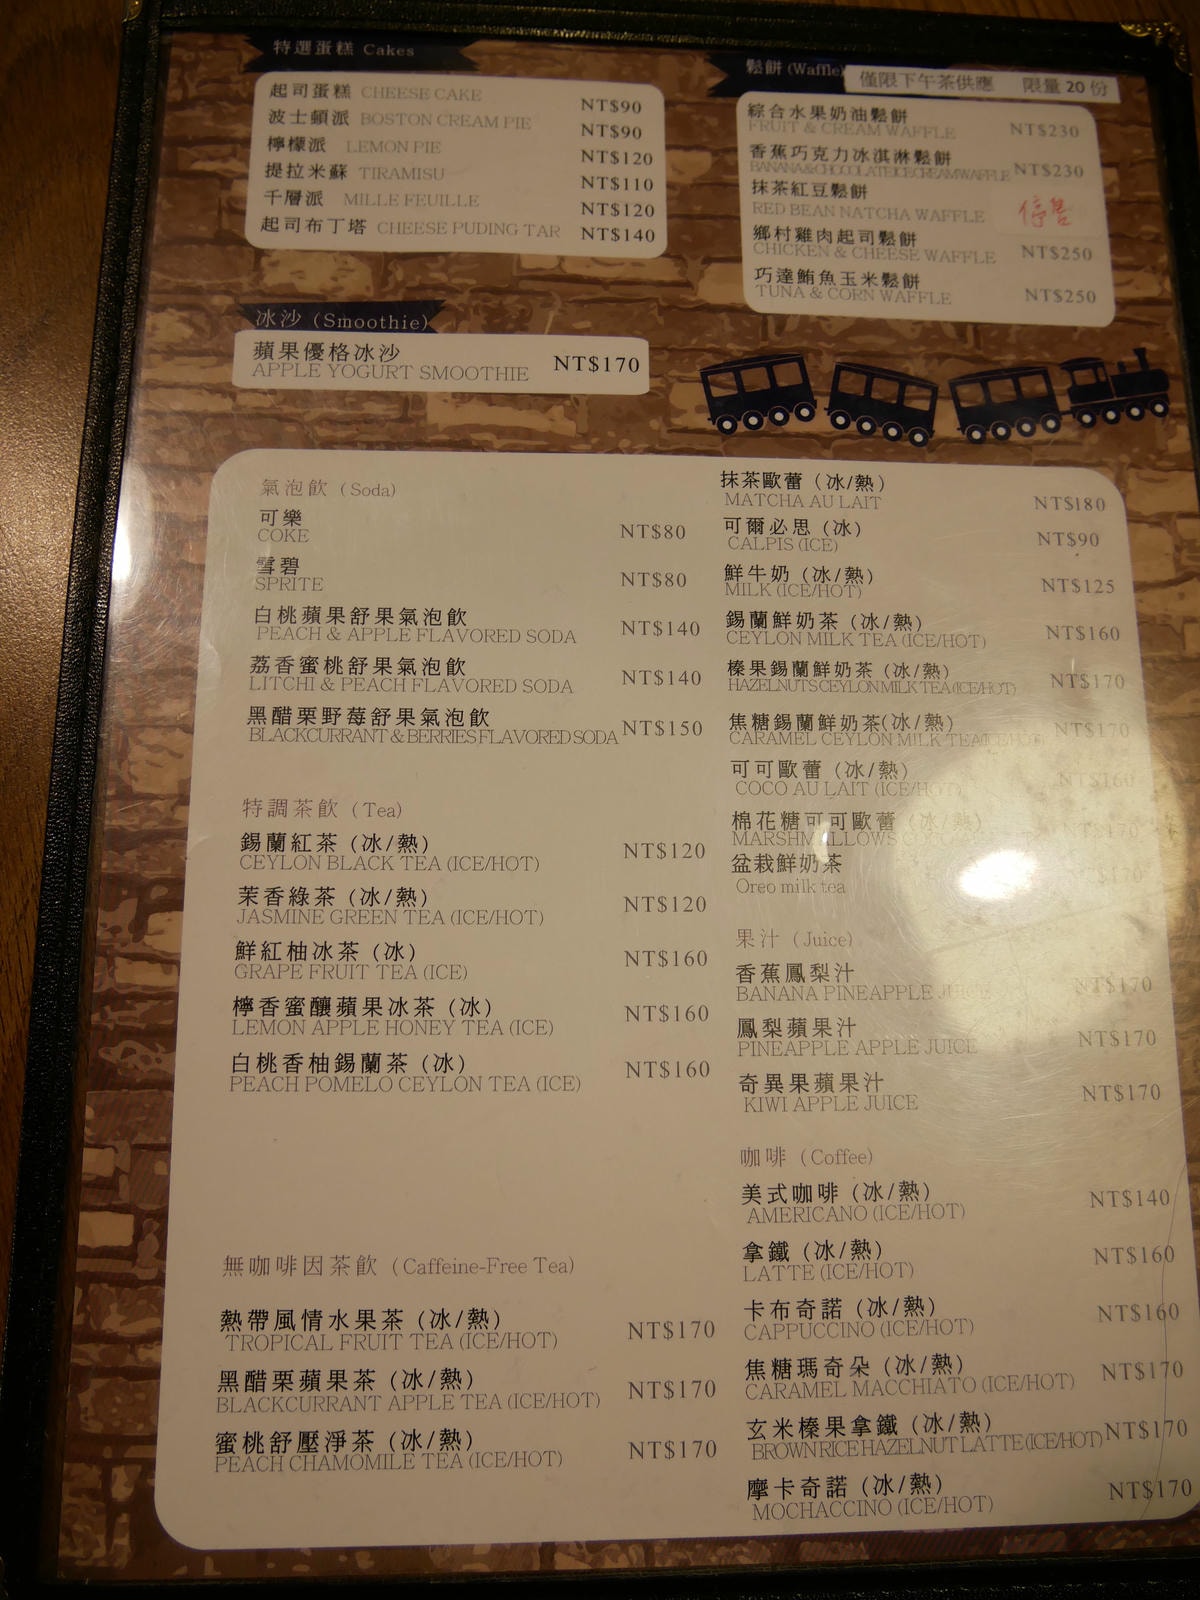 特選蛋糕 Cakes
起司蛋糕 CHEESE CAKE NT$90
波士頓派 BOSTON CREAM PIE NT$90
檸檬派 LEMON PIE NT$120
提拉米蘇 TIRAMISU NT$110
千層派 MILLE FEUILLE NT$120
起司布丁塔 CHEESE PUDING TAR NT$140
鬆餅 (Waffle) 僅限下午茶供應 限量20份
綜合水果奶油鬆餅
FRUIT & CREAM WAFFLE NT$230
香蕉巧克力冰淇淋鬆餅
BANANA & CHOCOLATE ICE CREAM WAFFLE NT$230
抹茶紅豆鬆餅
RED BEAN NATCHA WAFFLE 停售
鄉村雞肉起司鬆餅
CHICKEN & CHEESE WAFFLE NT$250
巧達鮪魚玉米鬆餅
TUNA & CORN WAFFLE NT$250
冰沙 (Smoothie)
蘋果優格冰沙
APPLE YOGURT SMOOTHIE NT$170
氣泡飲 (Soda)
可樂
COKE NT$80
雪碧
SPRITE NT$80
白桃蘋果舒果氣泡飲
PEACH & APPLE FLAVORED SODA NT$140
荔香蜜桃舒果氣泡飲
LITCHI & PEACH FLAVORED SODA NT$140
黑醋栗野莓舒果氣泡飲
BLACKCURRANT & BERRIES FLAVORED SODA NT$150
特調茶飲 (Tea)
錫蘭紅茶 (冰/熱)
CEYLON BLACK TEA (ICE/HOT) NT$120
茉香綠茶 (冰/熱)
JASMINE GREEN TEA (ICE/HOT) NT$120
鮮紅柚冰茶 (冰)
GRAPE FRUIT TEA (ICE) NT$160
檸香蜜釀蘋果冰茶 (冰)
LEMON APPLE HONEY TEA (ICE) NT$160
白桃香柚錫蘭茶 (冰)
PEACH POMELO CEYLON TEA (ICE) NT$160
無咖啡因茶飲 (Caffeine-Free Tea)
熱帶風情水果茶 (冰/熱)
TROPICAL FRUIT TEA (ICE/HOT) NT$170
黑醋栗蘋果茶 (冰/熱)
BLACKCURRANT APPLE TEA (ICE/HOT) NT$170
蜜桃舒壓淨茶 (冰/熱)
PEACH CHAMOMILE TEA (ICE/HOT) NT$170
抹茶歐蕾 (冰/熱)
MATCHA AU LAIT NT$180
可爾必思 (冰)
CALPIS (ICE) NT$90
鮮牛奶 (冰/熱)
MILK (ICE/HOT) NT$125
錫蘭鮮奶茶 (冰/熱)
CEYLON MILK TEA (ICE/HOT) NT$160
榛果錫蘭鮮奶茶 (冰/熱)
HAZELNUTS CEYLON MILK TEA (ICE/HOT) NT$170
焦糖錫蘭鮮奶茶(冰/熱)
CARAMEL CEYLON MILK TEA(ICE/HOT) NT$170
可可歐蕾 (冰/熱)
COCO AU LAIT (ICE/HOT) NT$160
棉花糖可可歐蕾 (冰/熱)
MARSHMALLOWS NT$170
盆栽鮮奶茶
Oreo milk tea NT$170
果汁 (Juice)
香蕉鳳梨汁
BANANA PINEAPPLE JUICE NT$170
鳳梨蘋果汁
PINEAPPLE APPLE JUICE NT$170
奇異果蘋果汁
KIWI APPLE JUICE NT$170
咖啡 (Coffee)
美式咖啡 (冰/熱)
AMERICANO (ICE/HOT) NT$140
拿鐵 (冰/熱)
LATTE (ICE/HOT) NT$160
卡布奇諾 (冰/熱)
CAPPUCCINO (ICE/HOT) NT$160
焦糖瑪奇朵 (冰/熱)
CARAMEL MACCHIATO (ICE/HOT) NT$170
玄米榛果拿鐵 (冰/熱)
BROWN RICE HAZELNUT LATTE (ICE/HOT) NT$170
摩卡奇諾 (冰/熱)
MOCHACCINO (ICE/HOT) NT$170